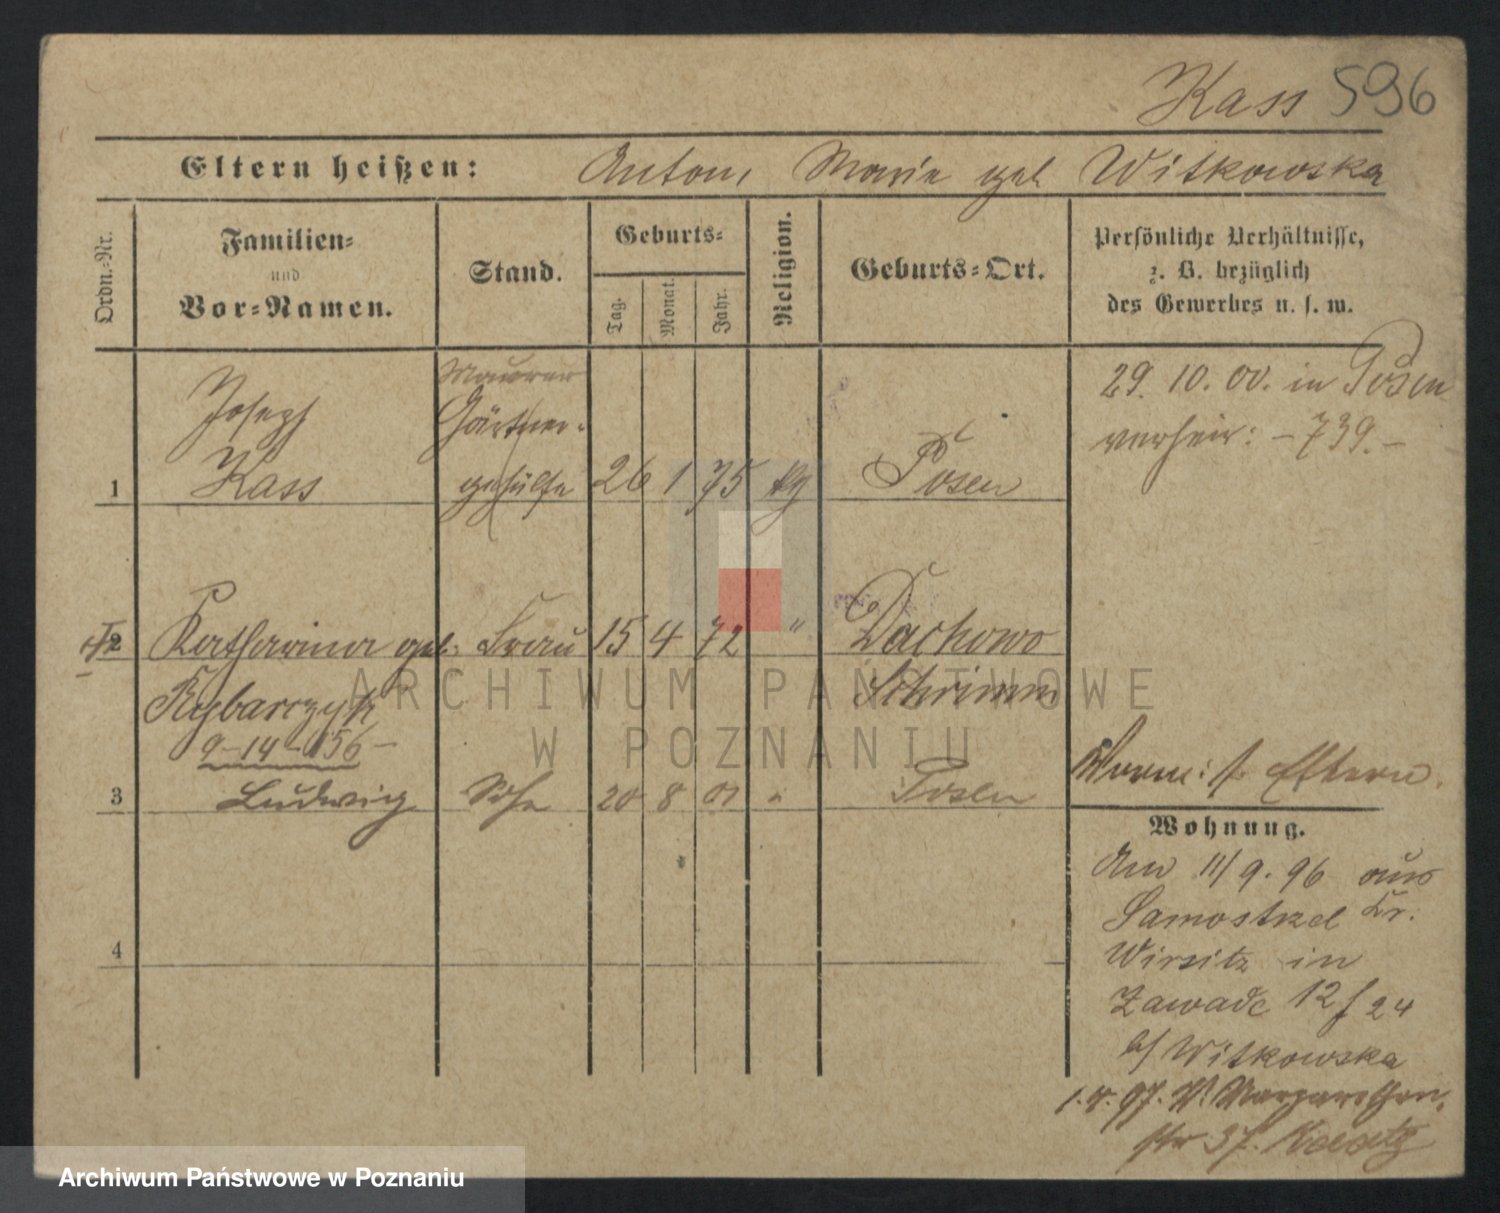 Kass 596
Eltern heißen: Anton, Marie geb Witkowska
Ordn.-Nr.
Familien-
und
Vor-Namen.
Stand.
Geburts-
Tag.
Monat.
Jahr.
Religion.
Geburts-Ort.
Persönliche Verhältnisse,
z. B. bezüglich
des Gewerbes u. s. w.
Maurer
Joseph Gärtner-
1 Kass gehülfe 26 1 75 kg Posen
29. 10. 00. in Posen
verheir: -739.-
2 Katharina geb. Frau 15 4 72 " Dachowo
Rybarczyk Schrimm
9-14-156-
3 Ludwig Sohn 20 8 01 " Posen
4
Worm: s. Eltern.
Wohnung.
Am 11/9. 96 aus
Samostrzel Kr.
Wirsitz in
Zawade 12 f 24
b/ Witkowska
1.4.97. Margarethen
str 37.
ARCHIWUM PAŃSTWOWE
W POZNANIU
Archiwum Państwowe w Poznaniu